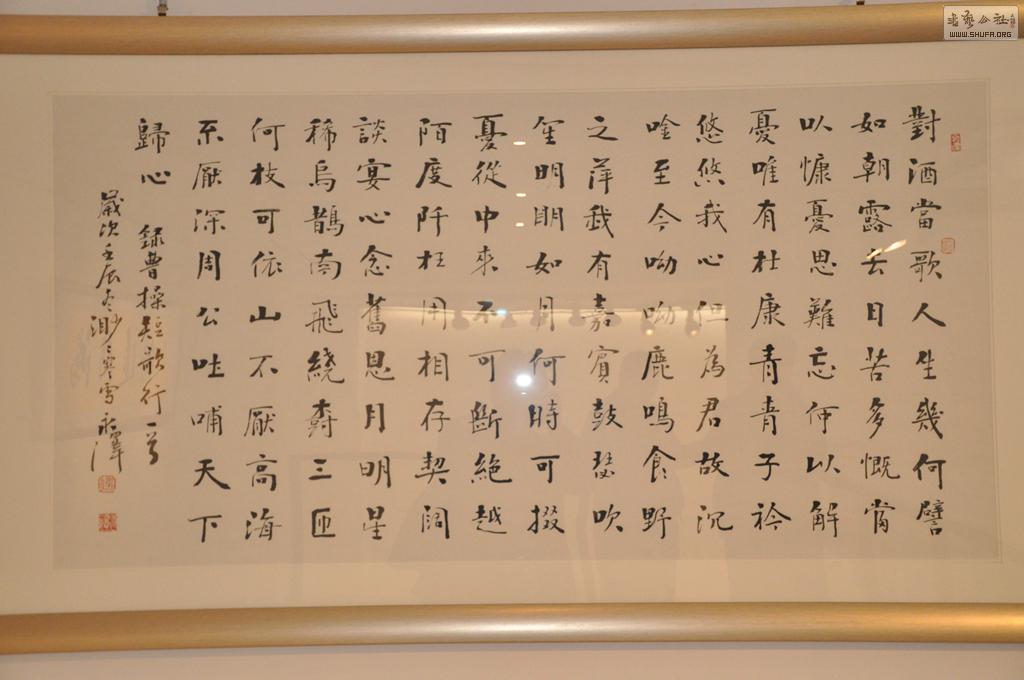 對酒當歌人生幾何譬
如朝露去日苦多慨當
以慷憂思難忘何以解
憂唯有杜康青青子衿
悠悠我心但為君故沉
唫至今呦呦鹿鳴食野
之萍我有嘉賓鼓瑟吹
笙明明如月何時可掇
憂從中來不可斷絕越
陌度阡枉用相存契闊
談宴心念舊恩月明星
稀烏鵲南飛繞樹三匝
何枝可依山不厭高海
不厭深周公吐哺天下
歸心 錄曹操短歌行一首
歲次壬辰冬渺渺寒雪永澤
书艺公社
WWW.SHUFA.ORG